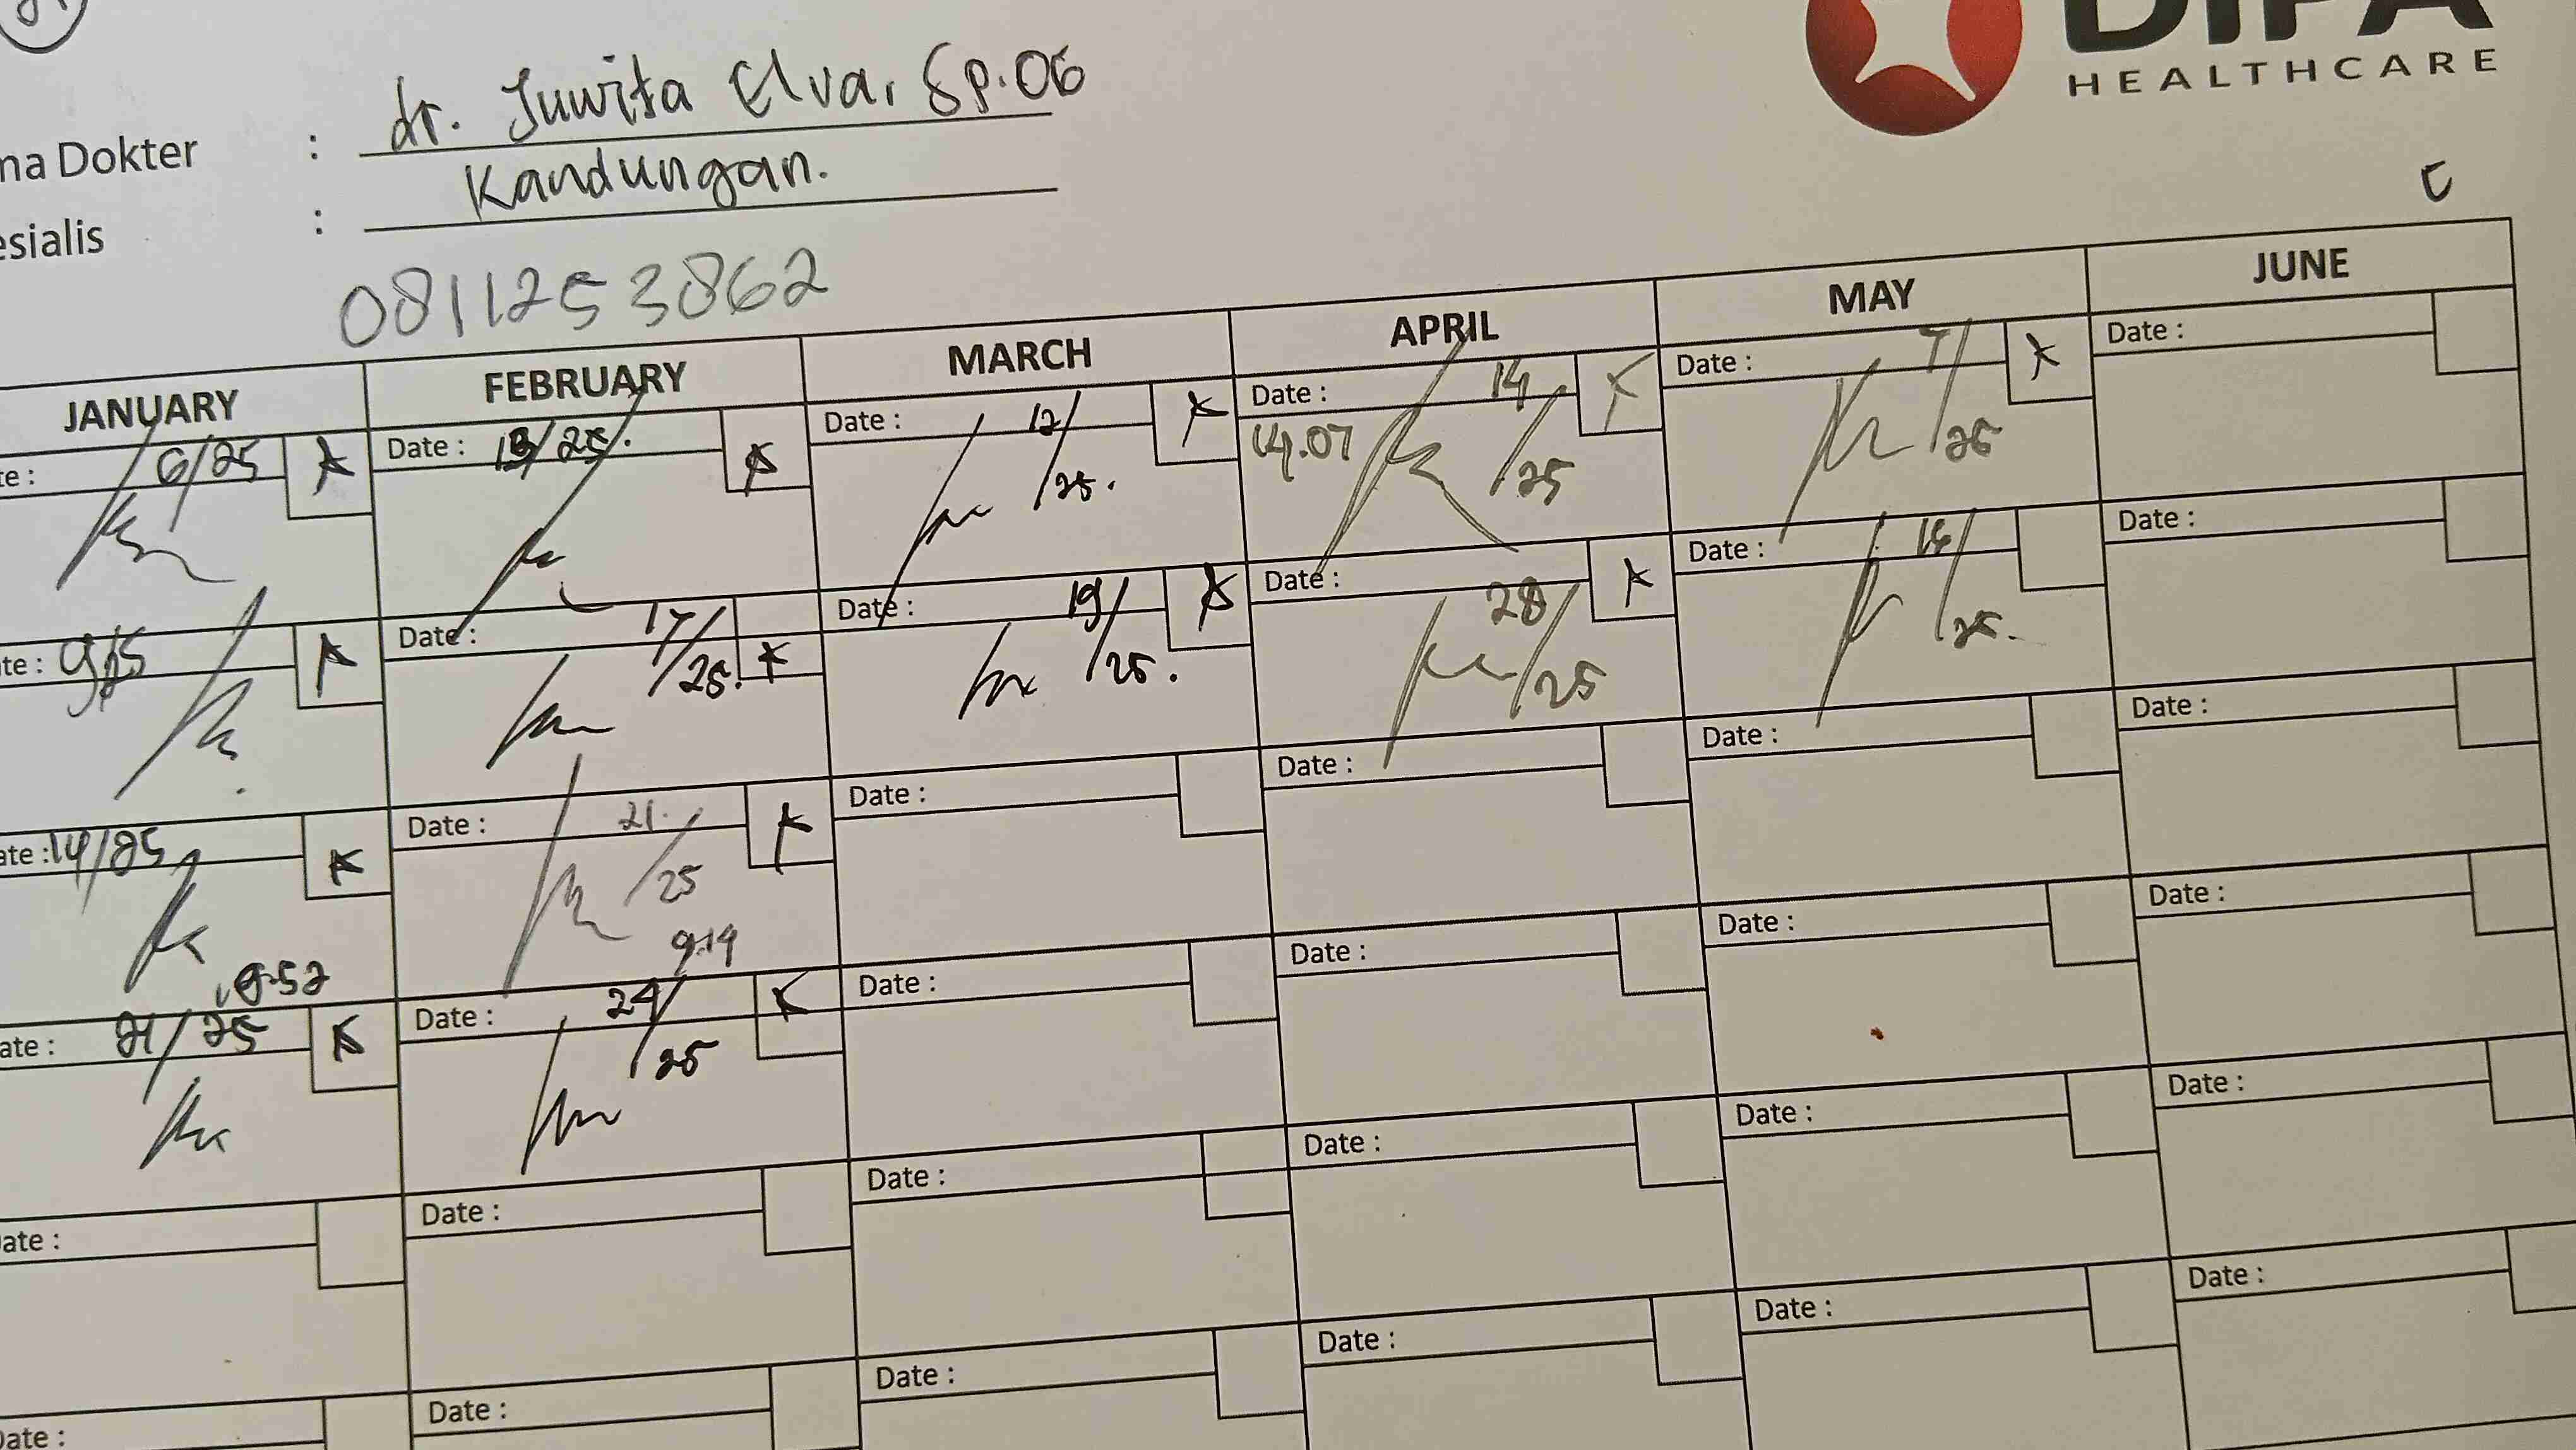 DIPA
HEALTHCARE
ma Dokter : dr. Juwita Elva, Sp.OG
esialis : Kandungan.
0811253862
C
JANUARY FEBRUARY MARCH APRIL MAY JUNE
te : 6/25 Date : 13/25. Date : 12/25. Date : 14/25 Date : 7/25 Date :
14.07
te : 9/25 Date : 17/25. Date : 19/25. Date : 28/25 Date : 16/25. Date :
ate : 14/25 Date : 21/25 Date : Date : Date : Date :
9.19
ate : 21/25 Date : 24/25 Date : Date : Date : Date :
ate : Date : Date : Date : Date : Date :
Date : Date : Date : Date : Date : Date :